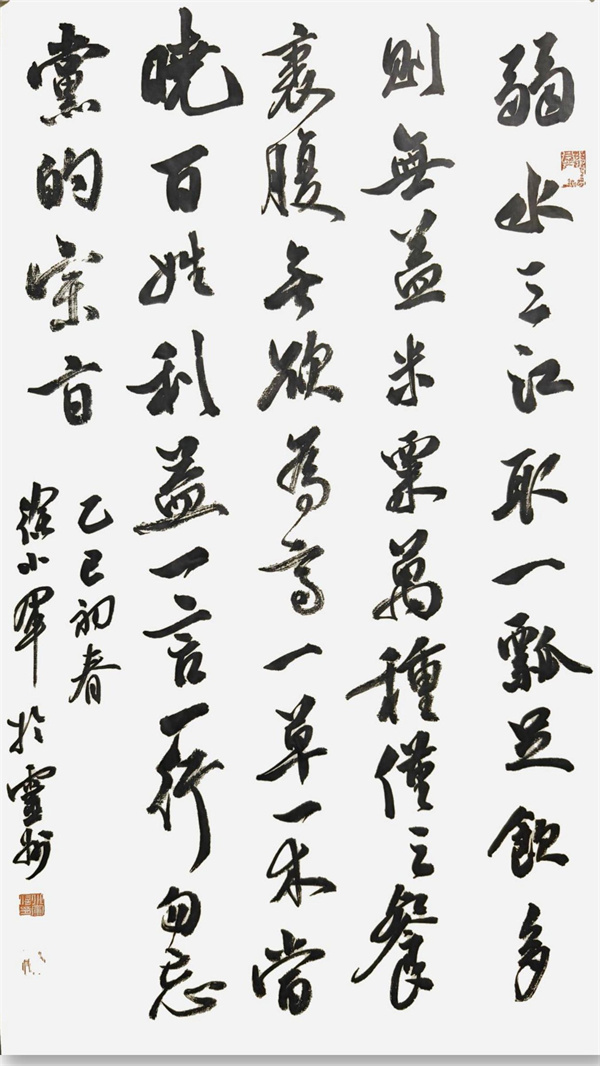 弱水三江取一瓢足飲多
则無益米粟萬種僅三餐
裹腹無欲為高一草一木當
曉百姓利益一言一行勿忘
黨的宗旨
乙巳初春
徐小軍於靈州